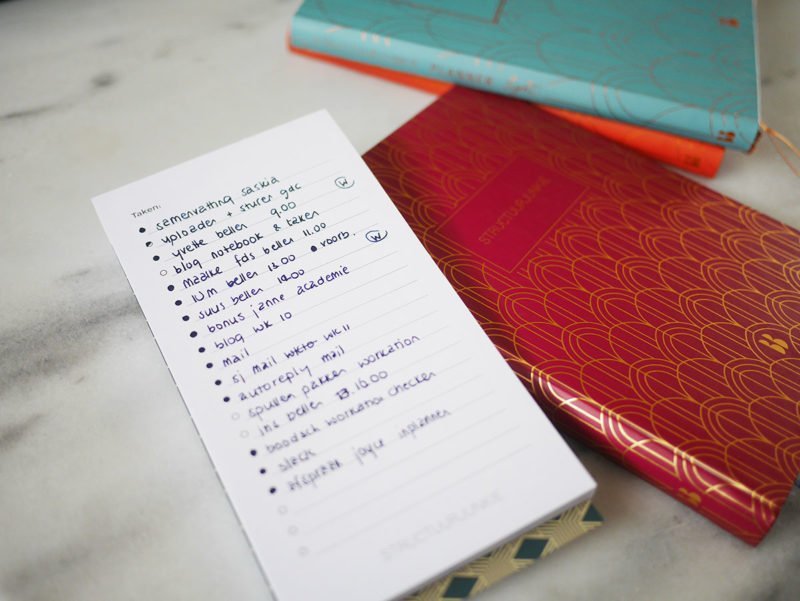 Taken:
samenvatting saskia
uploaden + sturen gac
yvette bellen 9.00
blog notebook & taken
maaike fds bellen 11.00
IUM bellen 13.00 • voorb.
suus bellen 14.00
bonus janne academie
blog wk 10
mail
sj mail wk 11
autoreply mail
spullen pakken workation
ina bellen 16.00
boodsch workation checken
slack
afspraak joyce inplannen
STRUCTUURJUNKIE
W
W
STRUCTUURJUNKIE
PLANNER